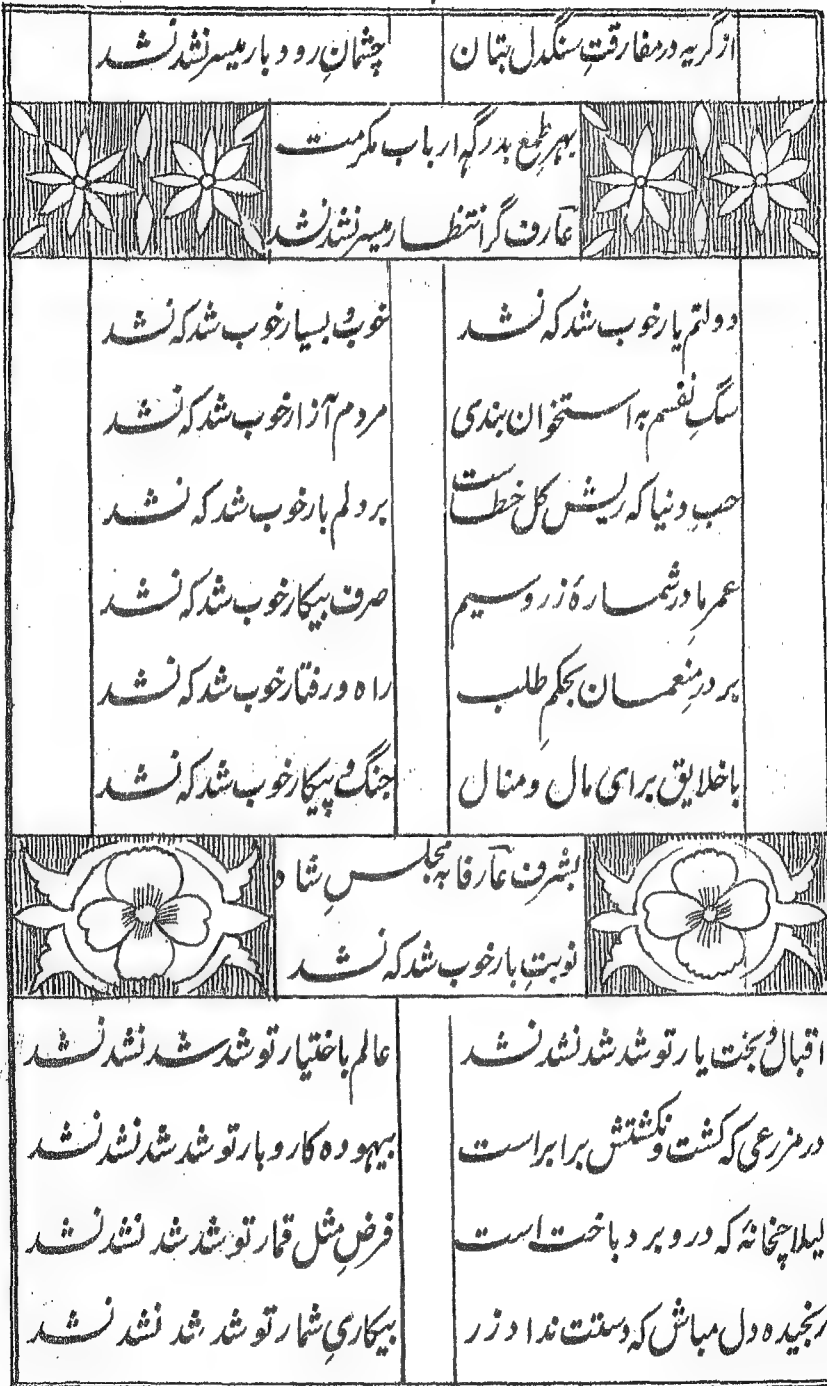 از گریه در مفارقتِ سنگدل بتان چشمانِ رودبار میسر نشد نشد
بهرِ طمع بدرگهِ ارباب مکرمت
عارف گر انتظار میسر نشد نشد
دولتم یار خوب شد که نشد خوب و بسیار خوب شد که نشد
سگِ نفسم به استخوان بندی مردم آزار خوب شد که نشد
حبِ دنیا که ریش کل خطاست بر دلم بار خوب شد که نشد
عمرِ ما در شمارهٔ زر و سیم صرف بیکار خوب شد که نشد
بر درِ منعمان بحکمِ طلب راه و رفتار خوب شد که نشد
با خلایق برای مال و منال جنگ و پیکار خوب شد که نشد
بشرف عارفا به مجلسِ شاه
نوبتِ بار خوب شد که نشد
اقبال و بخت یار تو شد شد نشد نشد عالم باختیار تو شد شد نشد نشد
در مزرعی که کشت و نکشتش برابر است بیهوده کاروبار تو شد شد نشد نشد
لیلاچخانهٔ که درو برد باخت است فرضِ مثل قمار تو شد شد نشد نشد
رنجیده دل مباش که دستت نداد زر بیکاریِ شمار تو شد شد نشد نشد